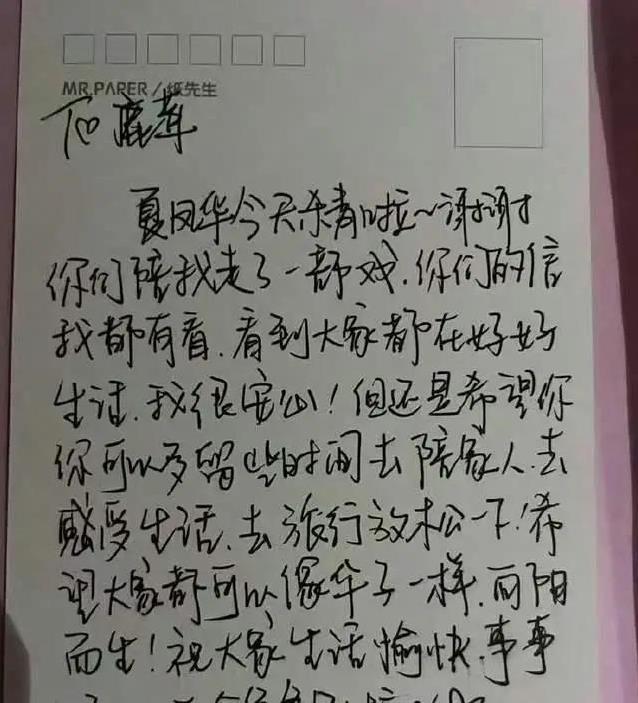 MR.PAPER/纸先生
To 鹿茸
夏凤华今天杀青啦~谢谢
你们陪我走了一部戏.你们的信
我都有看.看到大家都在好好
生活.我很安心!但还是希望你
你可以多留些时间去陪家人.去
感受生活.去旅行放松一下!希
望大家都可以像华子一样.向阳
而生!祝大家生活愉快.事事